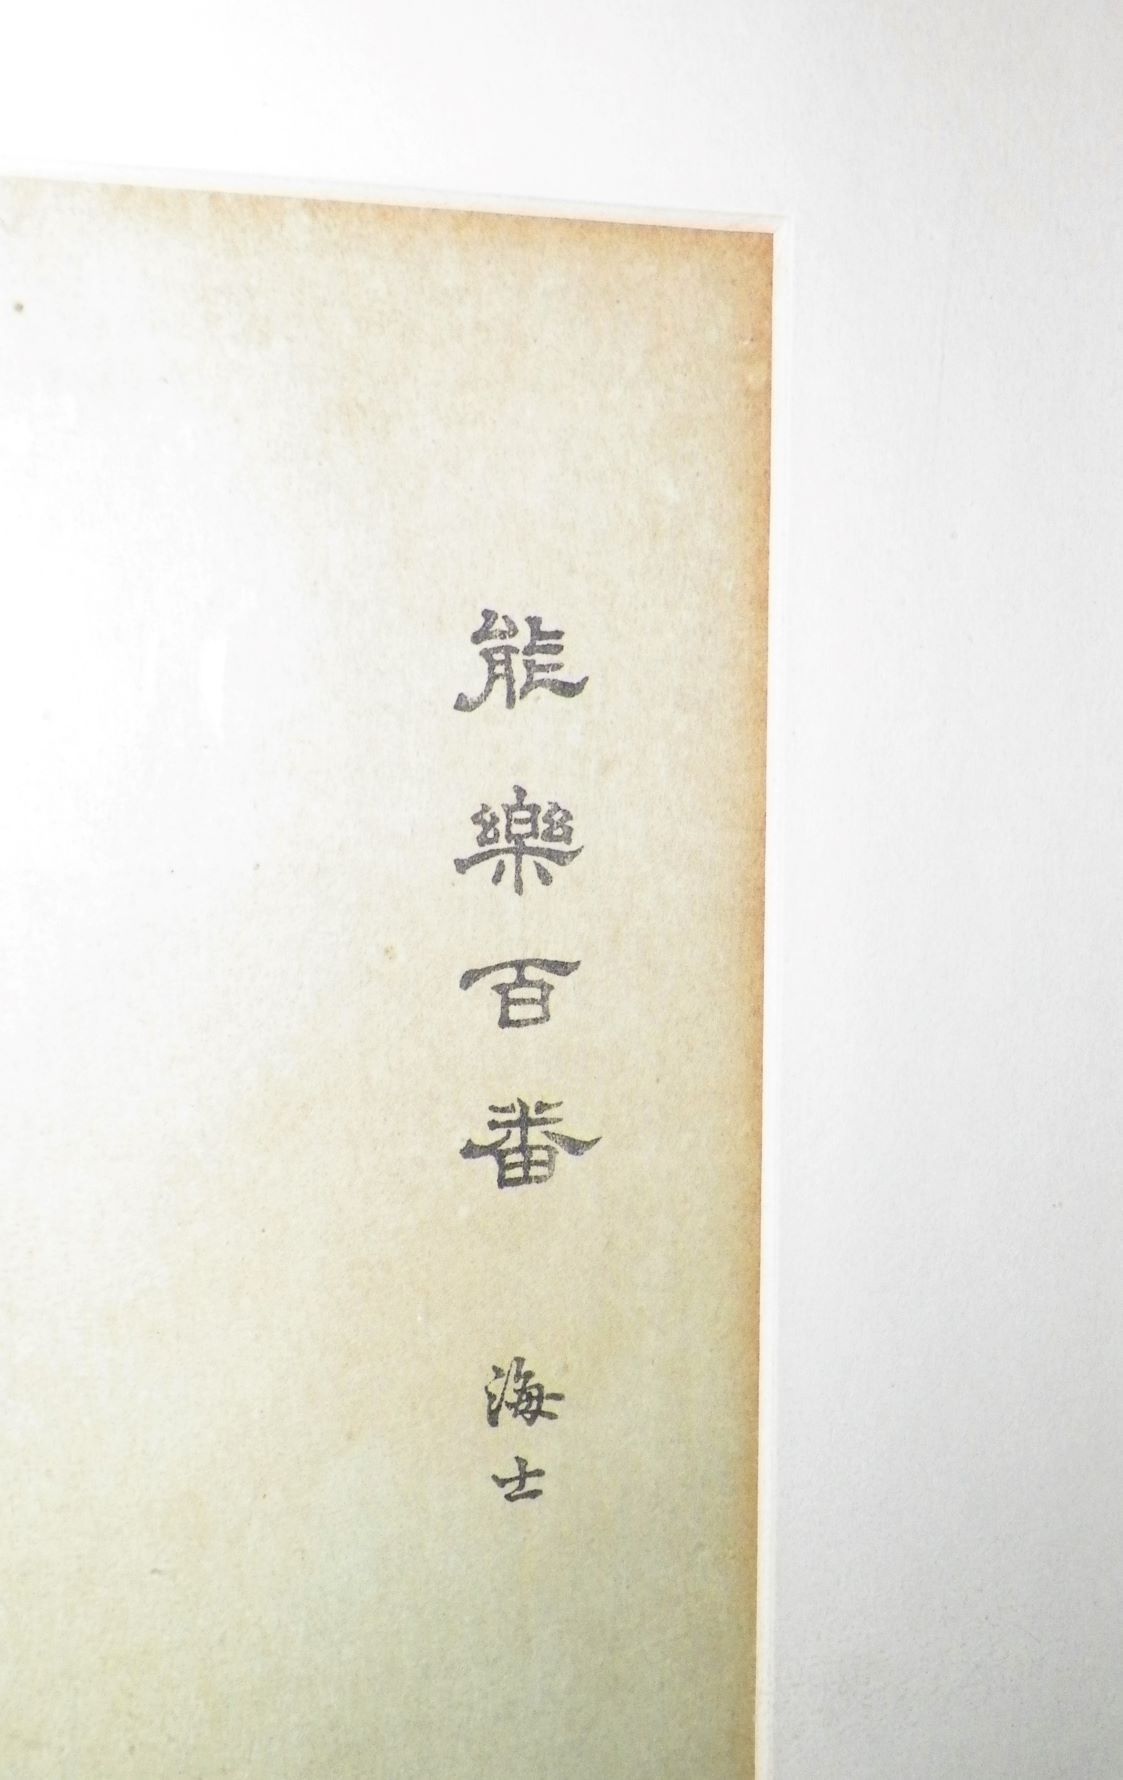 能樂百番 海士